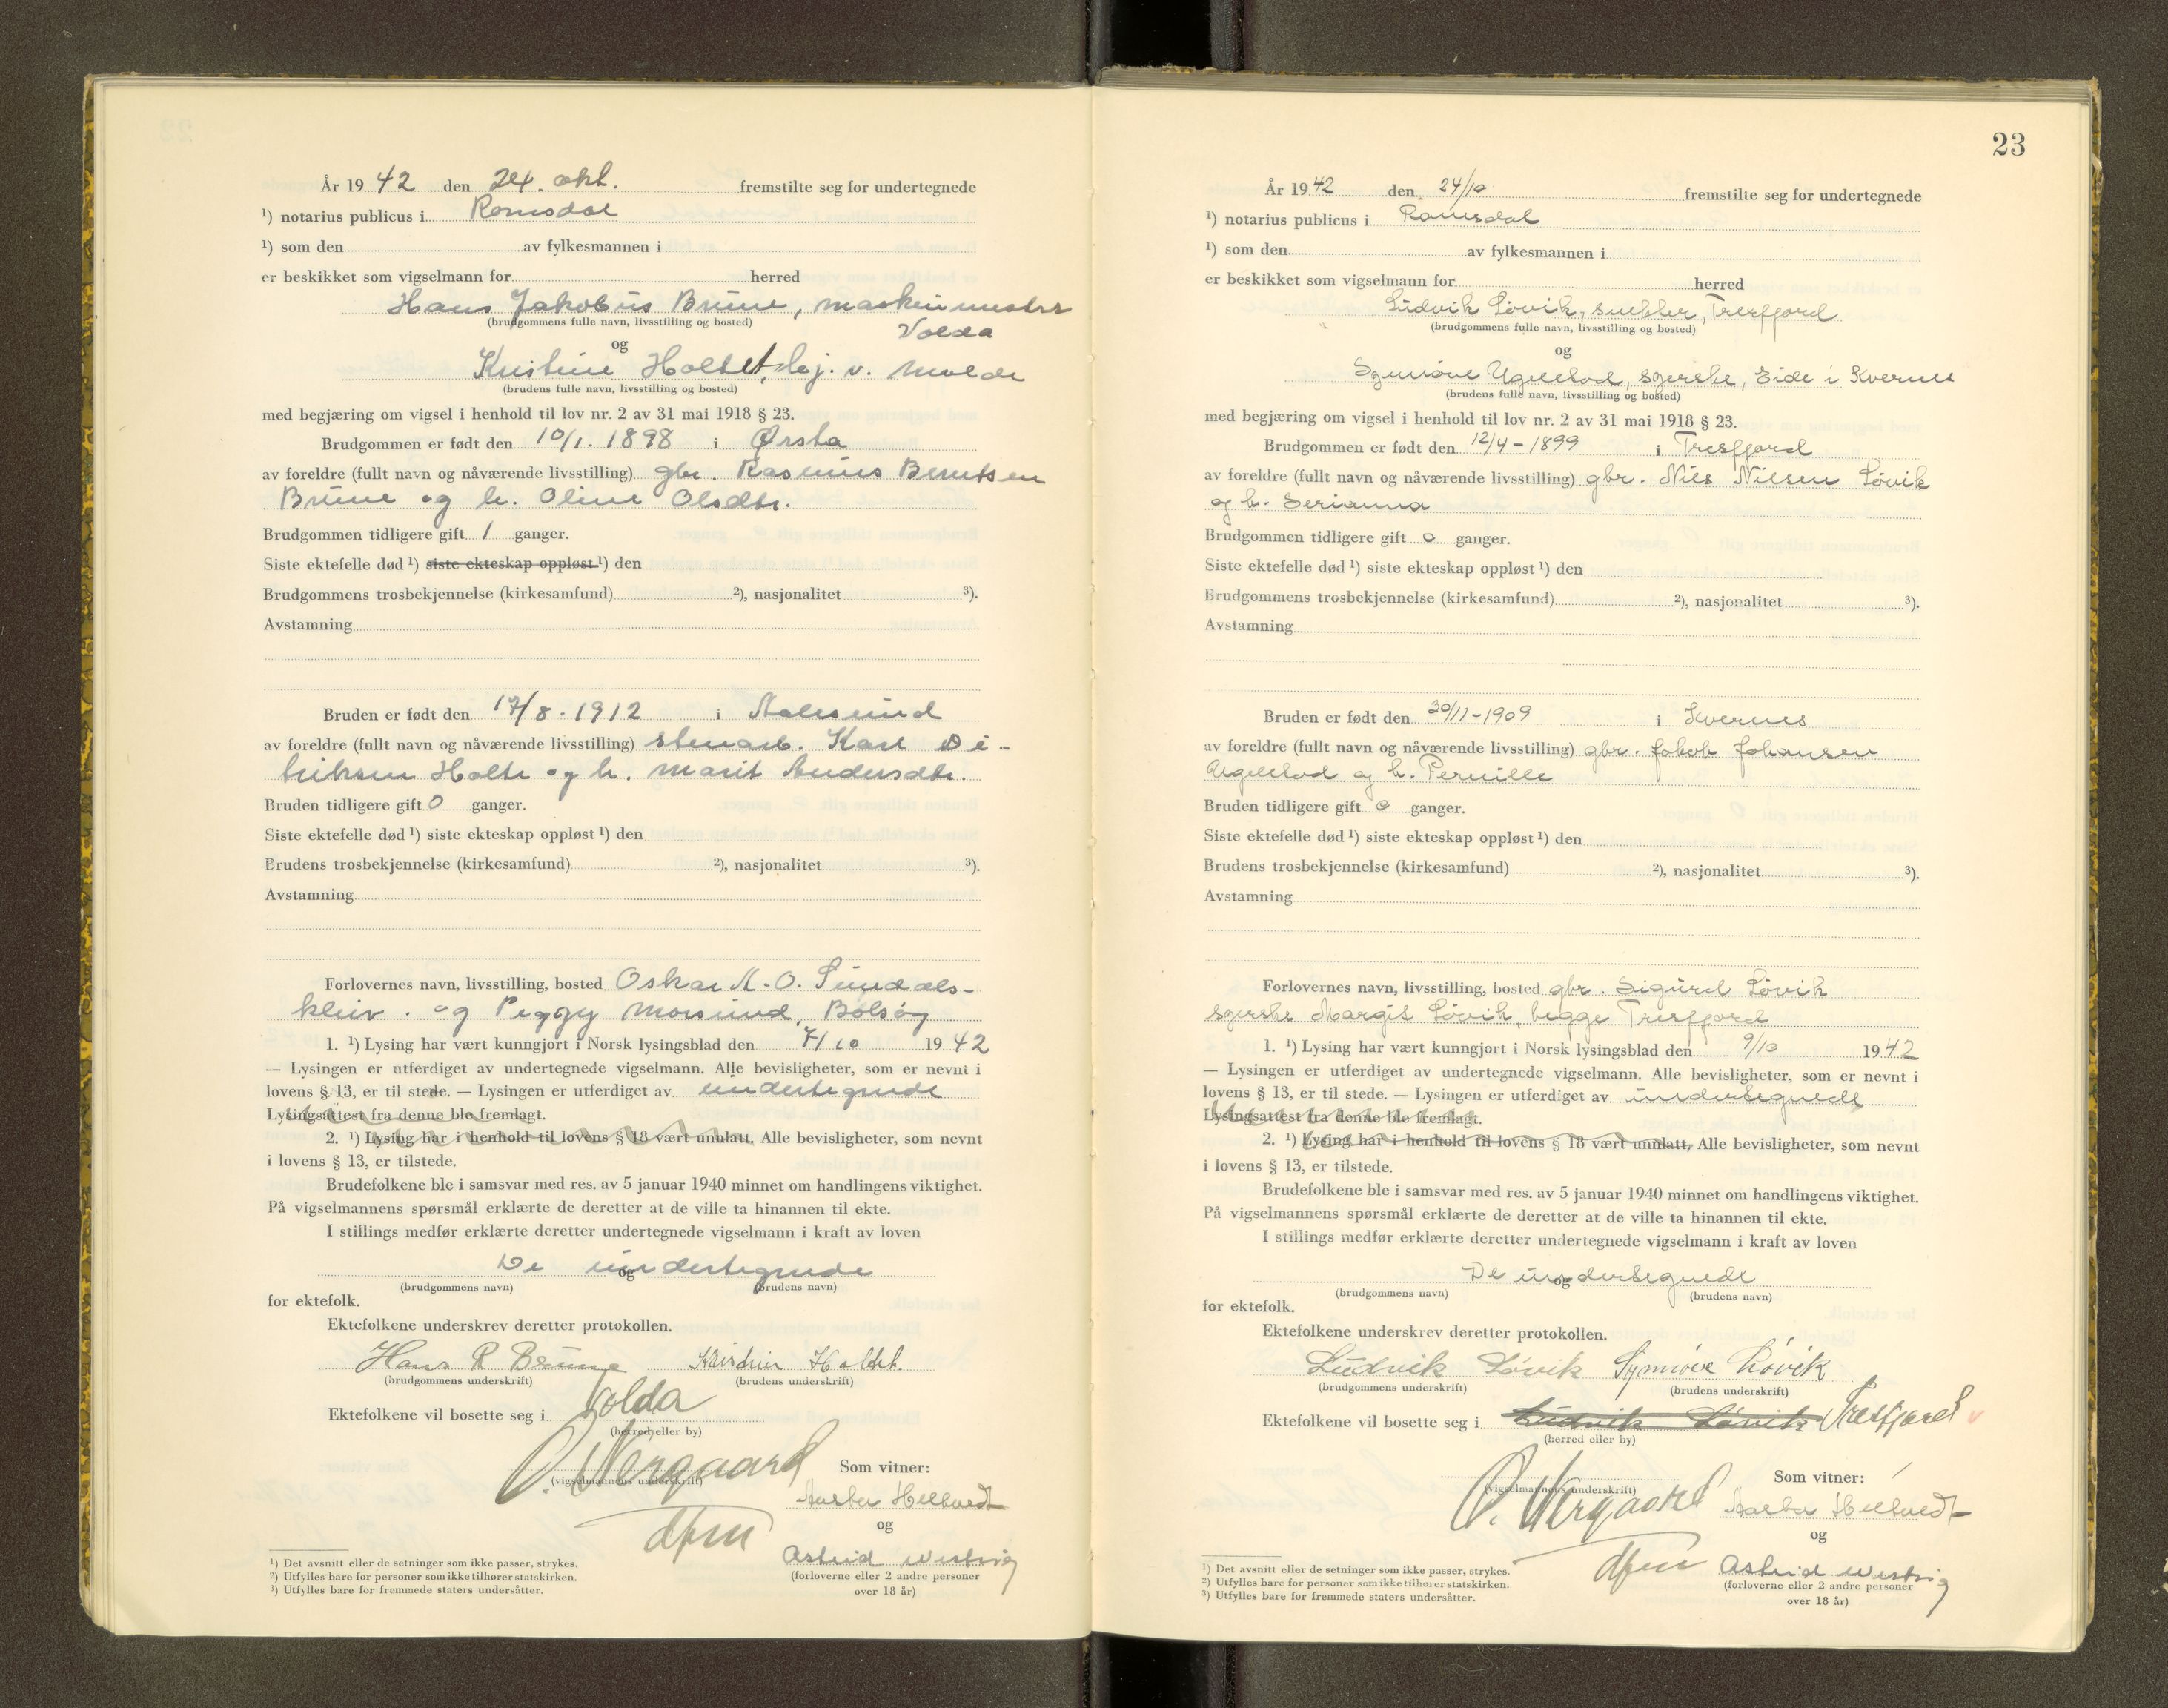 År 19 42 den 24. okt. fremstilte seg for undertegnede
¹) notarius publicus i Romsdal
¹) som den av fylkesmannen i
er beskikket som vigselmann for herred
Hans Jakobus Brune, maskinmester
(brudgommens fulle navn, livsstilling og bosted)
Volda
og
Kristine Holtet, hj. v. Molde
(brudens fulle navn, livsstilling og bosted)
med begjæring om vigsel i henhold til lov nr. 2 av 31 mai 1918 § 23.
Brudgommen er født den 10/1. 1898 i Ørsta
av foreldre (fullt navn og nåværende livsstilling) gbr. Rasmus Berntsen
Brune og h. Oline Olsdtr.
Brudgommen tidligere gift 1 ganger.
Siste ektefelle død ¹) siste ekteskap oppløst ¹) den
Brudgommens trosbekjennelse (kirkesamfund) ²), nasjonalitet ³).
Avstamning
Bruden er født den 17/8. 1912 i Aalesund
av foreldre (fullt navn og nåværende livsstilling) stenarb. Karl Di-
triksen Holte og h. Marit Andersdtr.
Bruden tidligere gift 0 ganger.
Siste ektefelle død ¹) siste ekteskap oppløst ¹) den
Brudens trosbekjennelse (kirkesamfund) ²), nasjonalitet ³).
Avstamning
Forlovernes navn, livsstilling, bosted Oskar A. O. Sundals-
kleiv. og Peggy Morsund, Bolsøy
1. ¹) Lysing har vært kunngjort i Norsk lysingsblad den 7/10 19 42
— Lysingen er utferdiget av undertegnede vigselmann. Alle bevisligheter, som er nevnt i
lovens § 13, er til stede. — Lysingen er utferdiget av undertegnede
Lysingsattest fra denne ble fremlagt.
2. ¹) Lysing har i henhold til lovens § 18 vært unnlatt. Alle bevisligheter, som nevnt
i lovens § 13, er tilstede.
Brudefolkene ble i samsvar med res. av 5 januar 1940 minnet om handlingens viktighet.
På vigselmannens spørsmål erklærte de deretter at de ville ta hinannen til ekte.
I stillings medfør erklærte deretter undertegnede vigselmann i kraft av loven
De undertegnede
og
(brudgommens navn) (brudens navn)
for ektefolk.
Ektefolkene underskrev deretter protokollen.
Hans R Brune Kristine Holtet.
(brudgommens underskrift) (brudens underskrift)
Ektefolkene vil bosette seg i Volda
(herred eller by)
O. Nergaard
(vigselmannens underskrift)
Som vitner:
Aasta Helseth
dfm
og
Astrid Westvig
(forloverne eller 2 andre personer
over 18 år)
¹) Det avsnitt eller de setninger som ikke passer, strykes.
²) Utfylles bare for personer som ikke tilhører statskirken.
³) Utfylles bare for fremmede staters undersåtter.
23
År 19 42 den 24/10 fremstilte seg for undertegnede
¹) notarius publicus i Romsdal
¹) som den av fylkesmannen i
er beskikket som vigselmann for herred
Ludvik Løvik, snekker, Tresfjord
(brudgommens fulle navn, livsstilling og bosted)
og
Synnøve Ugelstad, syerske, Eide i Kvernes
(brudens fulle navn, livsstilling og bosted)
med begjæring om vigsel i henhold til lov nr. 2 av 31 mai 1918 § 23.
Brudgommen er født den 12/4 - 1899 i Tresfjord
av foreldre (fullt navn og nåværende livsstilling) gbr. Nils Nilsen Løvik
og h. Serianna
Brudgommen tidligere gift 0 ganger.
Siste ektefelle død ¹) siste ekteskap oppløst ¹) den
Brudgommens trosbekjennelse (kirkesamfund) ²), nasjonalitet ³).
Avstamning
Bruden er født den 30/11 - 1909 i Kvernes
av foreldre (fullt navn og nåværende livsstilling) gbr. Jakob Johansen
Ugelstad og h. Pernille
Bruden tidligere gift 0 ganger.
Siste ektefelle død ¹) siste ekteskap oppløst ¹) den
Brudens trosbekjennelse (kirkesamfund) ²), nasjonalitet ³).
Avstamning
Forlovernes navn, livsstilling, bosted gbr. Sigurd Løvik
syerske Margit Løvik, begge Tresfjord
1. ¹) Lysing har vært kunngjort i Norsk lysingsblad den 9/10 19 42
— Lysingen er utferdiget av undertegnede vigselmann. Alle bevisligheter, som er nevnt i
lovens § 13, er til stede. — Lysingen er utferdiget av undertegnede
Lysingsattest fra denne ble fremlagt.
2. ¹) Lysing har i henhold til lovens § 18 vært unnlatt, Alle bevisligheter, som nevnt
i lovens § 13, er tilstede.
Brudefolkene ble i samsvar med res. av 5 januar 1940 minnet om handlingens viktighet.
På vigselmannens spørsmål erklærte de deretter at de ville ta hinannen til ekte.
I stillings medfør erklærte deretter undertegnede vigselmann i kraft av loven
De undertegnede
og
(brudgommens navn) (brudens navn)
for ektefolk.
Ektefolkene underskrev deretter protokollen.
Ludvik Løvik Synnøve Løvik
(brudgommens underskrift) (brudens underskrift)
Ektefolkene vil bosette seg i Ludvik Løvik Tresfjord
(herred eller by)
O. Nergaard
(vigselmannens underskrift)
Som vitner:
Aasta Helseth
dfm
og
Astrid Westvig
(forloverne eller 2 andre personer
over 18 år)
¹) Det avsnitt eller de setninger som ikke passer, strykes.
²) Utfylles bare for personer som ikke tilhører statskirken.
³) Utfylles bare for fremmede staters undersåtter.